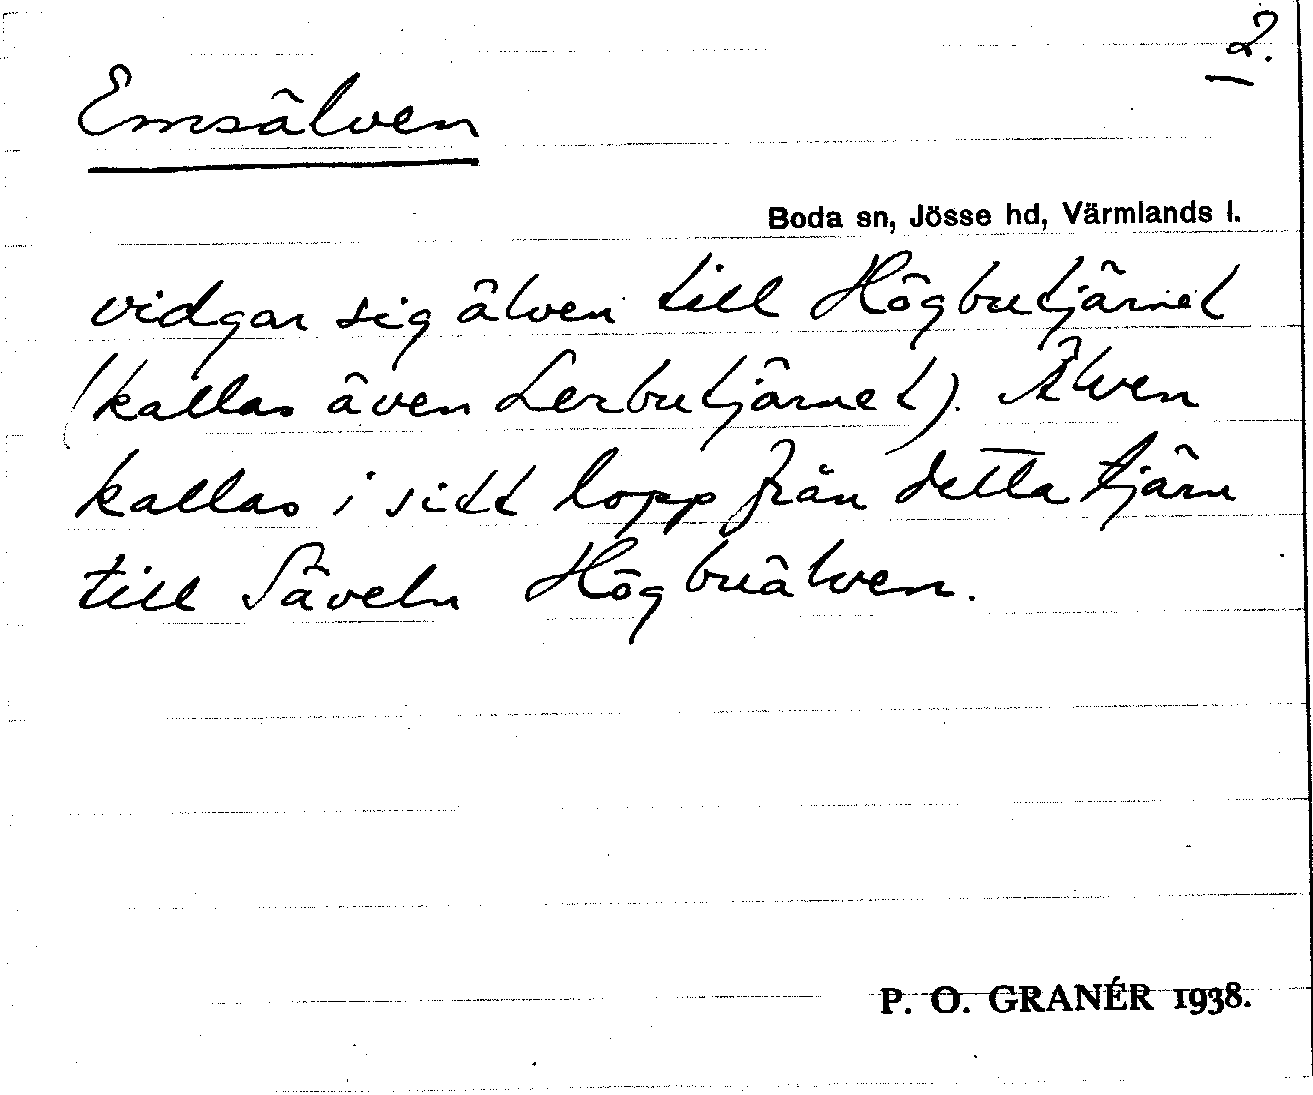 2.
Emsälven
Boda sn, Jösse hd, Värmlands l.
vidgar sig älven till Högbutjärnet
(kallas även Lerbutjärnet). Älven
kallas i sitt lopp från detta tjärn
till Säveln Högbuälven.
P. O. GRANÉR 1938.